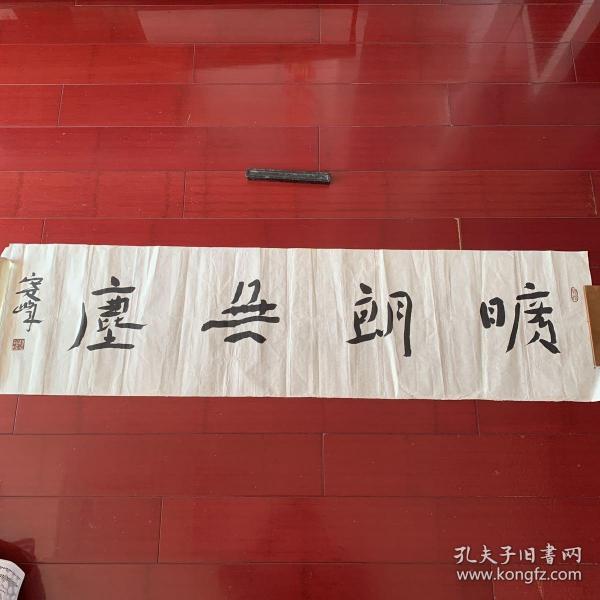 曠朗無塵
安峰
孔夫子旧書网
www.kongfz.com